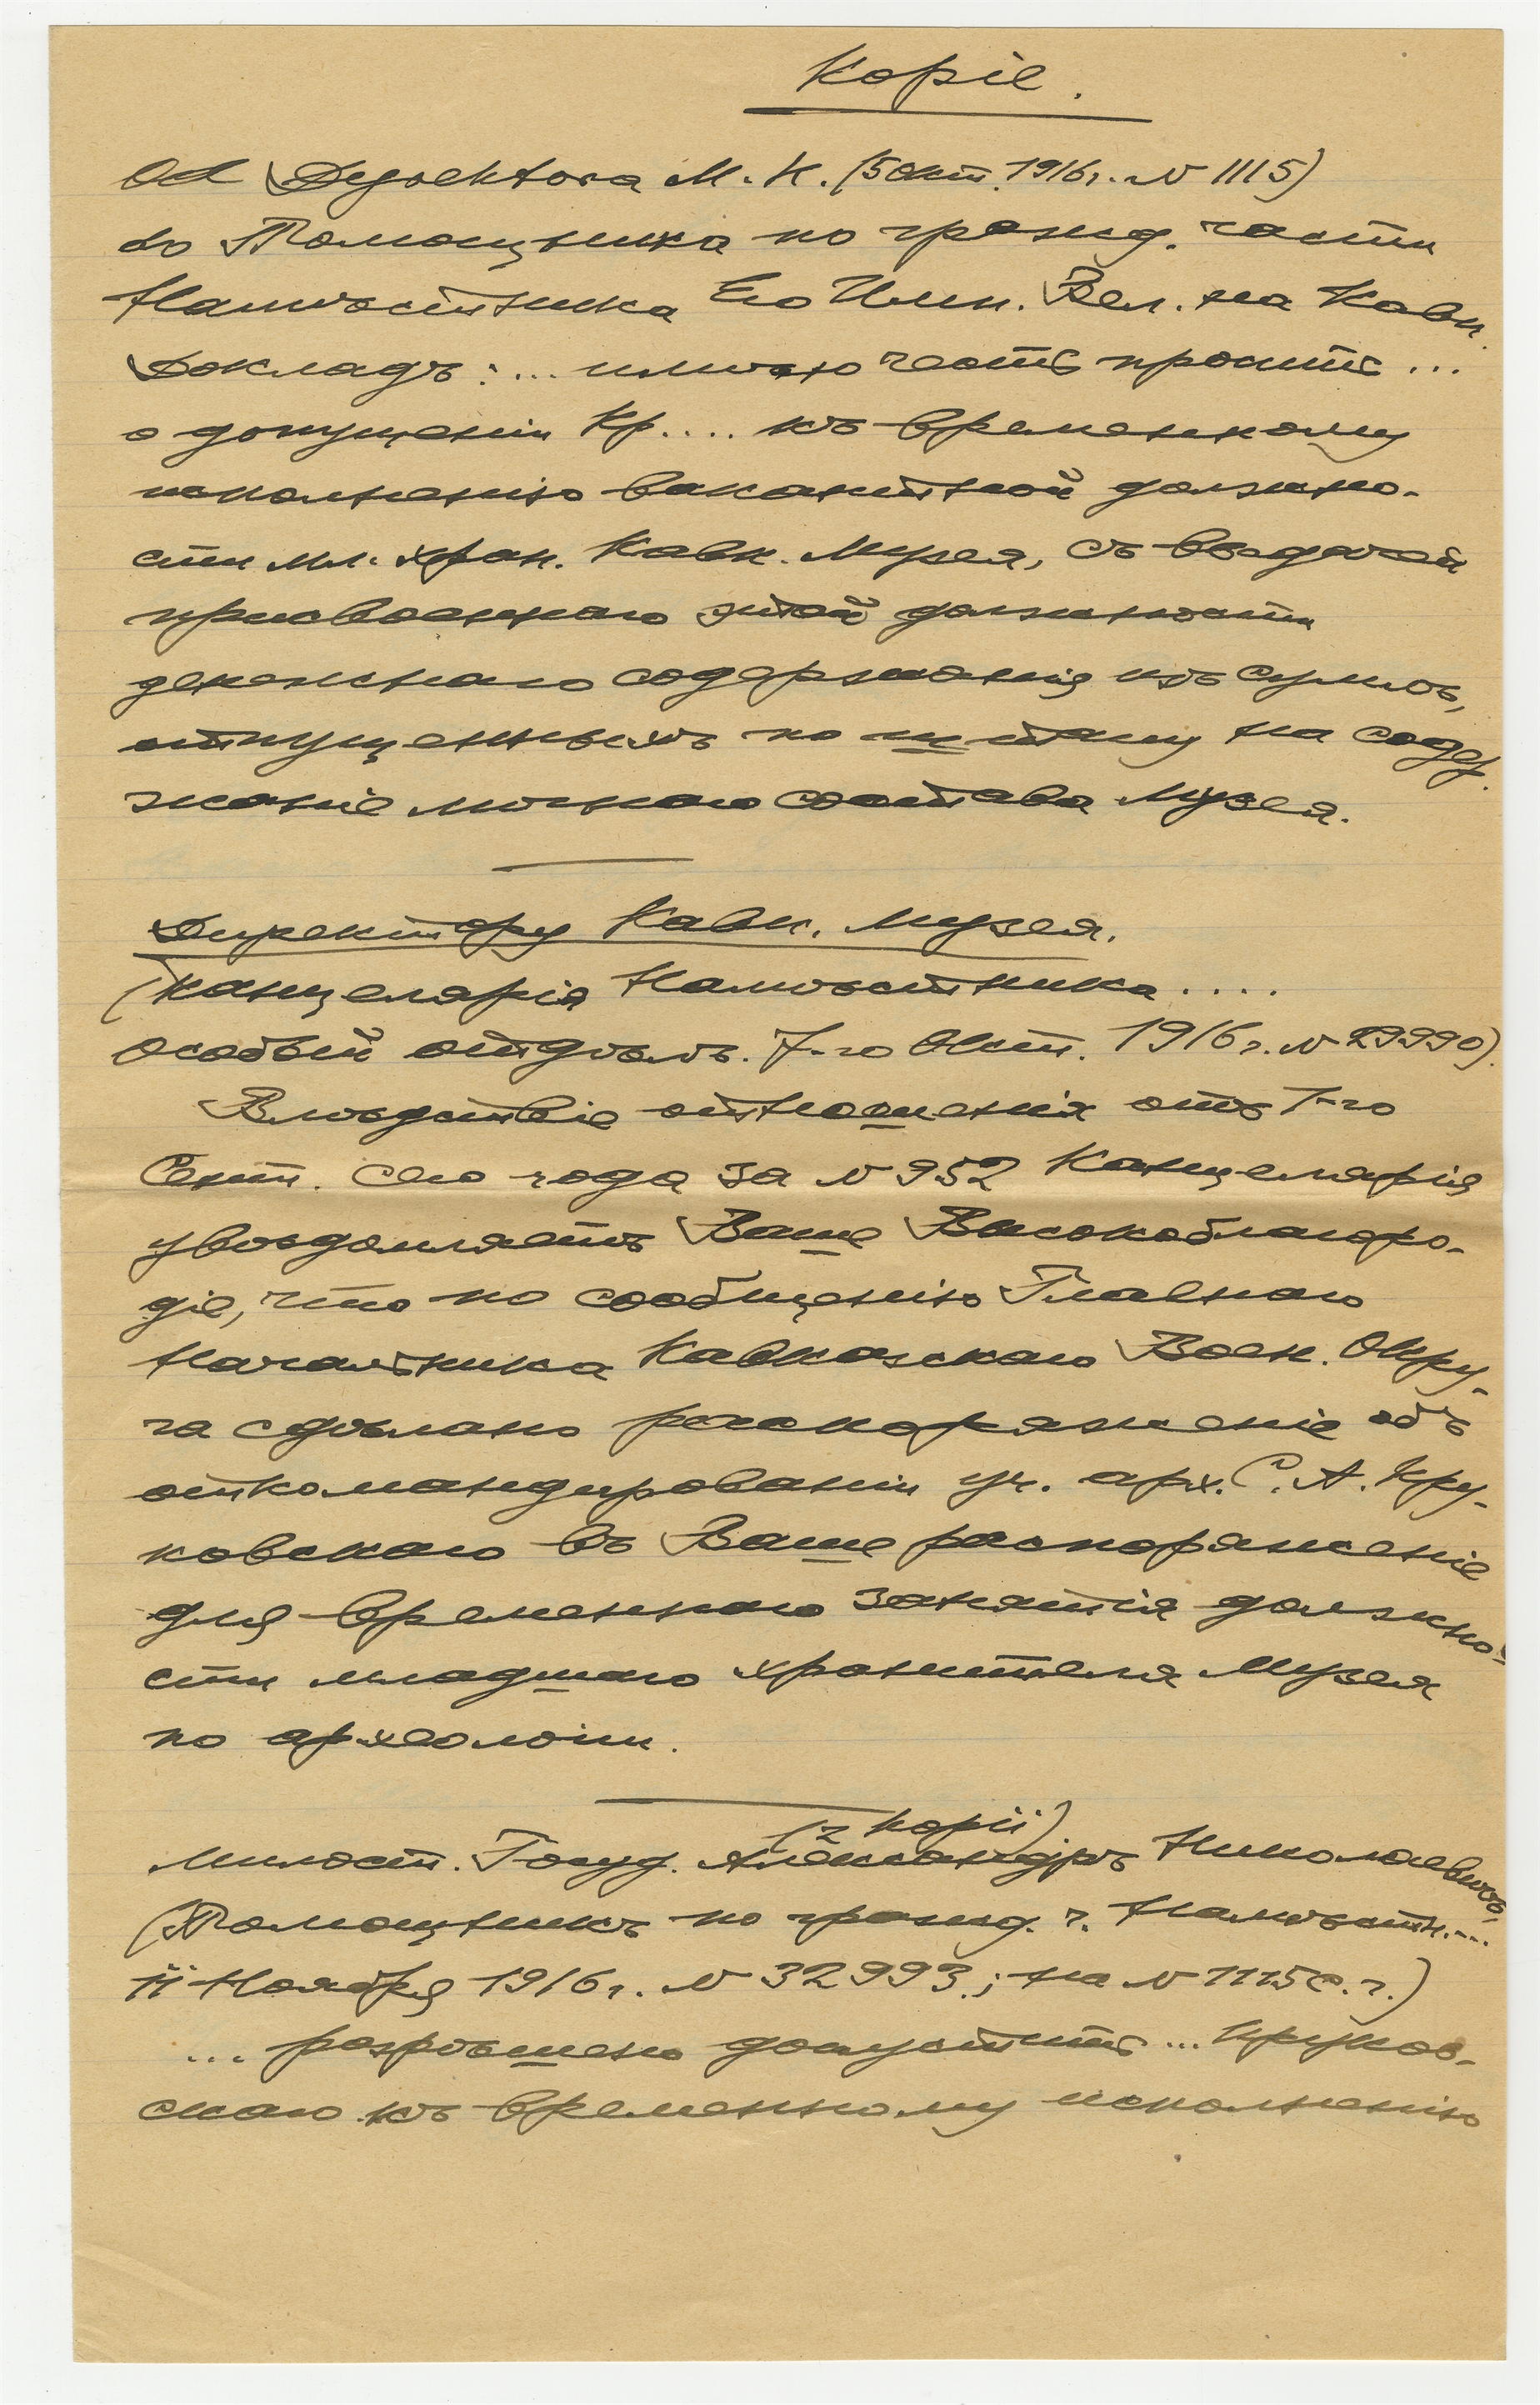 Kopie.
Od Dyrektora M. K. (5 Окт. 1916 г. № 1115)
do Помощника по гражд. части
Намѣстника Его Имп. Вел. на Кавк.
Докладъ: ... имѣю честь просить ...
о допущеніи Кр.... къ временному
исполненію вакантной должно-
сти мл. хран. Кавк. Музея, съ выдачей
присвоеннаго этой должности
денежнаго содержанія изъ суммъ,
отпущенныхъ по штату на содер-
жаніе личнаго состава Музея.
Директору Кавк. Музея.
(Канцелярія Намѣстника ....
особый отдѣлъ. 7-го Окт. 1916 г. № 29990).
Вслѣдствіе отношенія отъ 7-го
Сент. сего года за № 952 Канцелярія
увѣдомляетъ Ваше Высокоблагоро-
діе, что по сообщенію Главнаго
Начальника Кавказскаго Воен. Окру-
га сдѣлано распоряженіе объ
откомандированіи уч. арх. С. А. Кру-
ковскаго въ Ваше распоряженіе
для временнаго занятія должно-
сти младшаго хранителя Музея
по археологіи.
(z kopii)
Милост. Госуд. Александръ Николаевичъ,
(Помощникъ по гражд. ч. Намѣстн. ...
11 Ноября 1916 г. № 32993.; на № 1115 с. г.)
... разрѣшено допустить ... Круков-
скаго къ временному исполненію